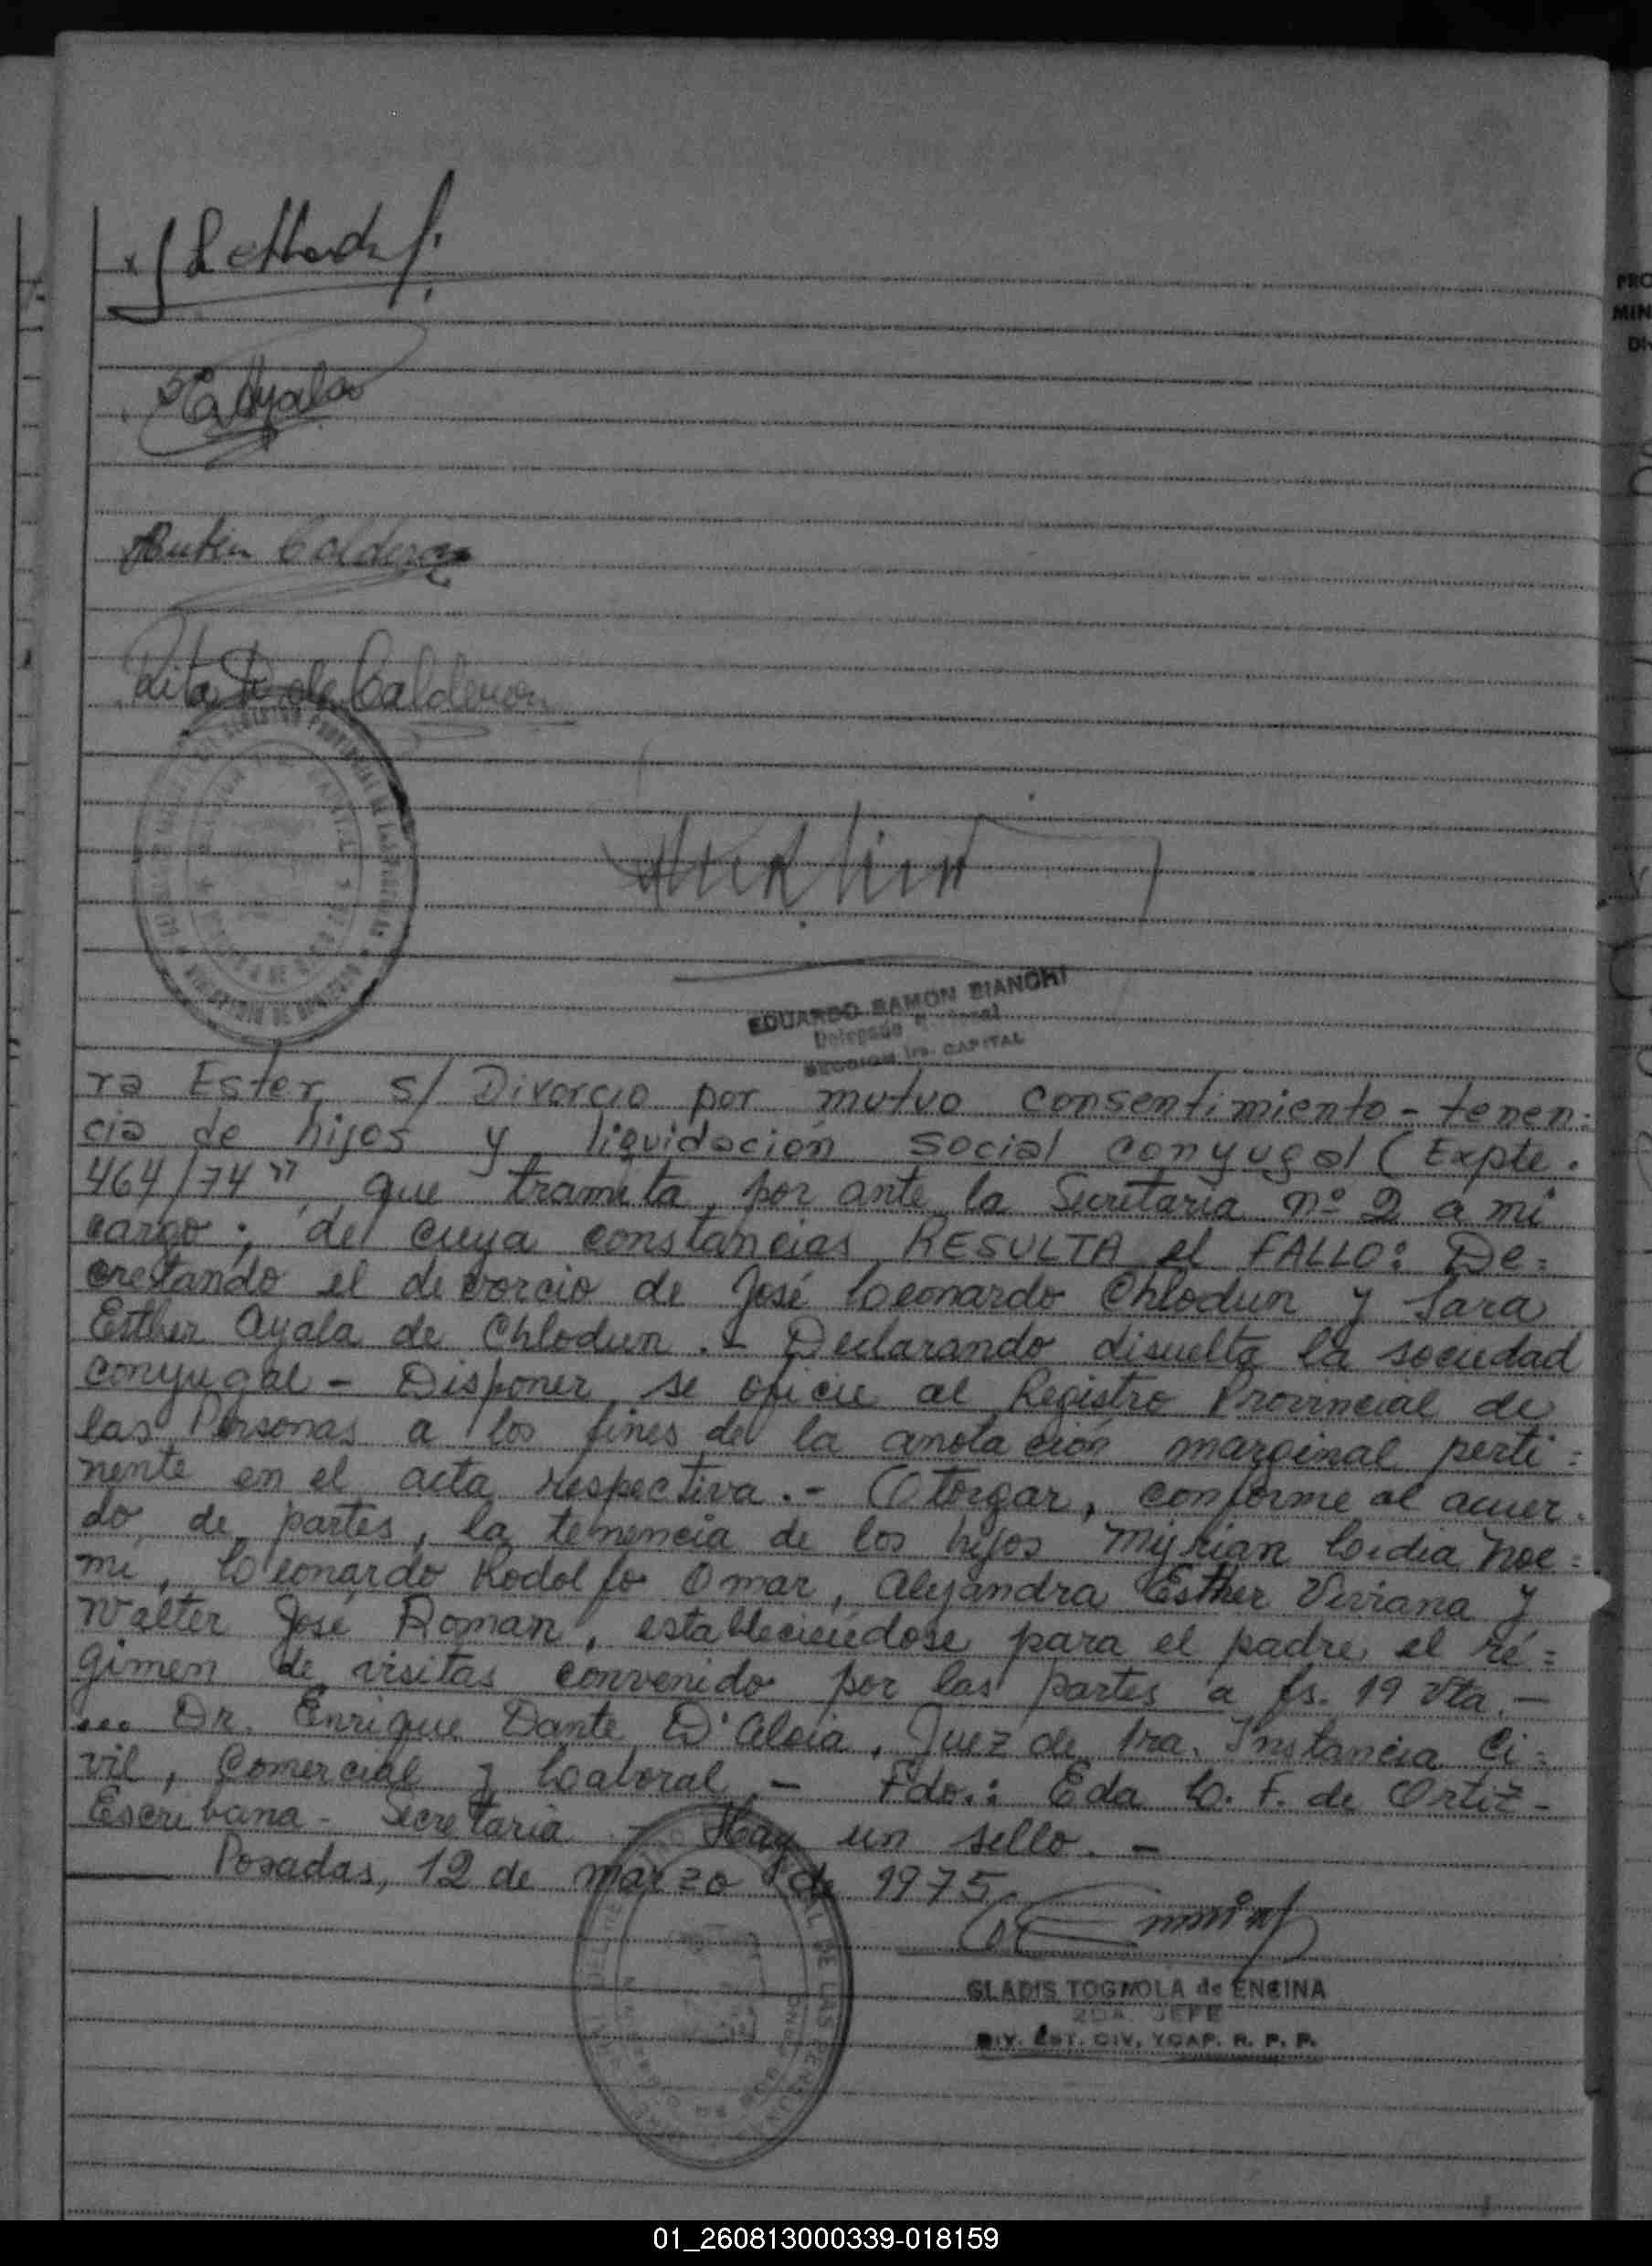 Ayala
Rubén Calderon
Rita R. de Calderon
EDUARDO RAMON BIANCHI
Delegado
SECCION 1ra. CAPITAL
ra Ester s/ Divorcio por mutuo consentimiento - tenen=
cia de hijos y liquidación social conyugal (Expte.
464/74", que tramita por ante la Secretaria nº 2 a mi
cargo; de cuya constancias RESULTA el FALLO: De=
cretando el devorcio de José Leonardo Chlodun y Sara
Esther Ayala de Chlodun. - Declarando disuelta la sociedad
conyugal - Disponer se oficie al Registro Provincial de
las Personas a los fines de la anotación marginal perti=
nente en el acta respectiva. - Otorgar, conforme al acuer=
do de partes, la tenencia de los hijos Myrian Lidia Noe=
mi, Leonardo Rodolfo Omar, Alejandra Esther Viviana y
Walter José Roman, estableciéndose para el padre el ré=
gimen de visitas convenido por las partes a fs. 19 vta. -
... Dr. Enrique Dante D'Aloia, Juez de 1ra. Instancia Ci=
vil, Comercial y Laboral - Fdo.: Eda L. F. de Ortiz -
Escribana - Secretaria - Hay un sello. -
Posadas, 12 de marzo de 1975.
GLADIS TOGNOLA de ENCINA
2DA. JEFE
DIV. EST. CIV. YCAP. R. P. P.
01_260813000339-018159